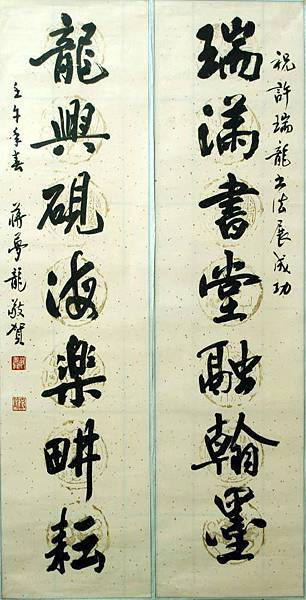 祝許瑞龍书法展成功
瑞滿書堂融翰墨
龍興硯海楽畊耘
壬午年春 蔣夢龍敬賀